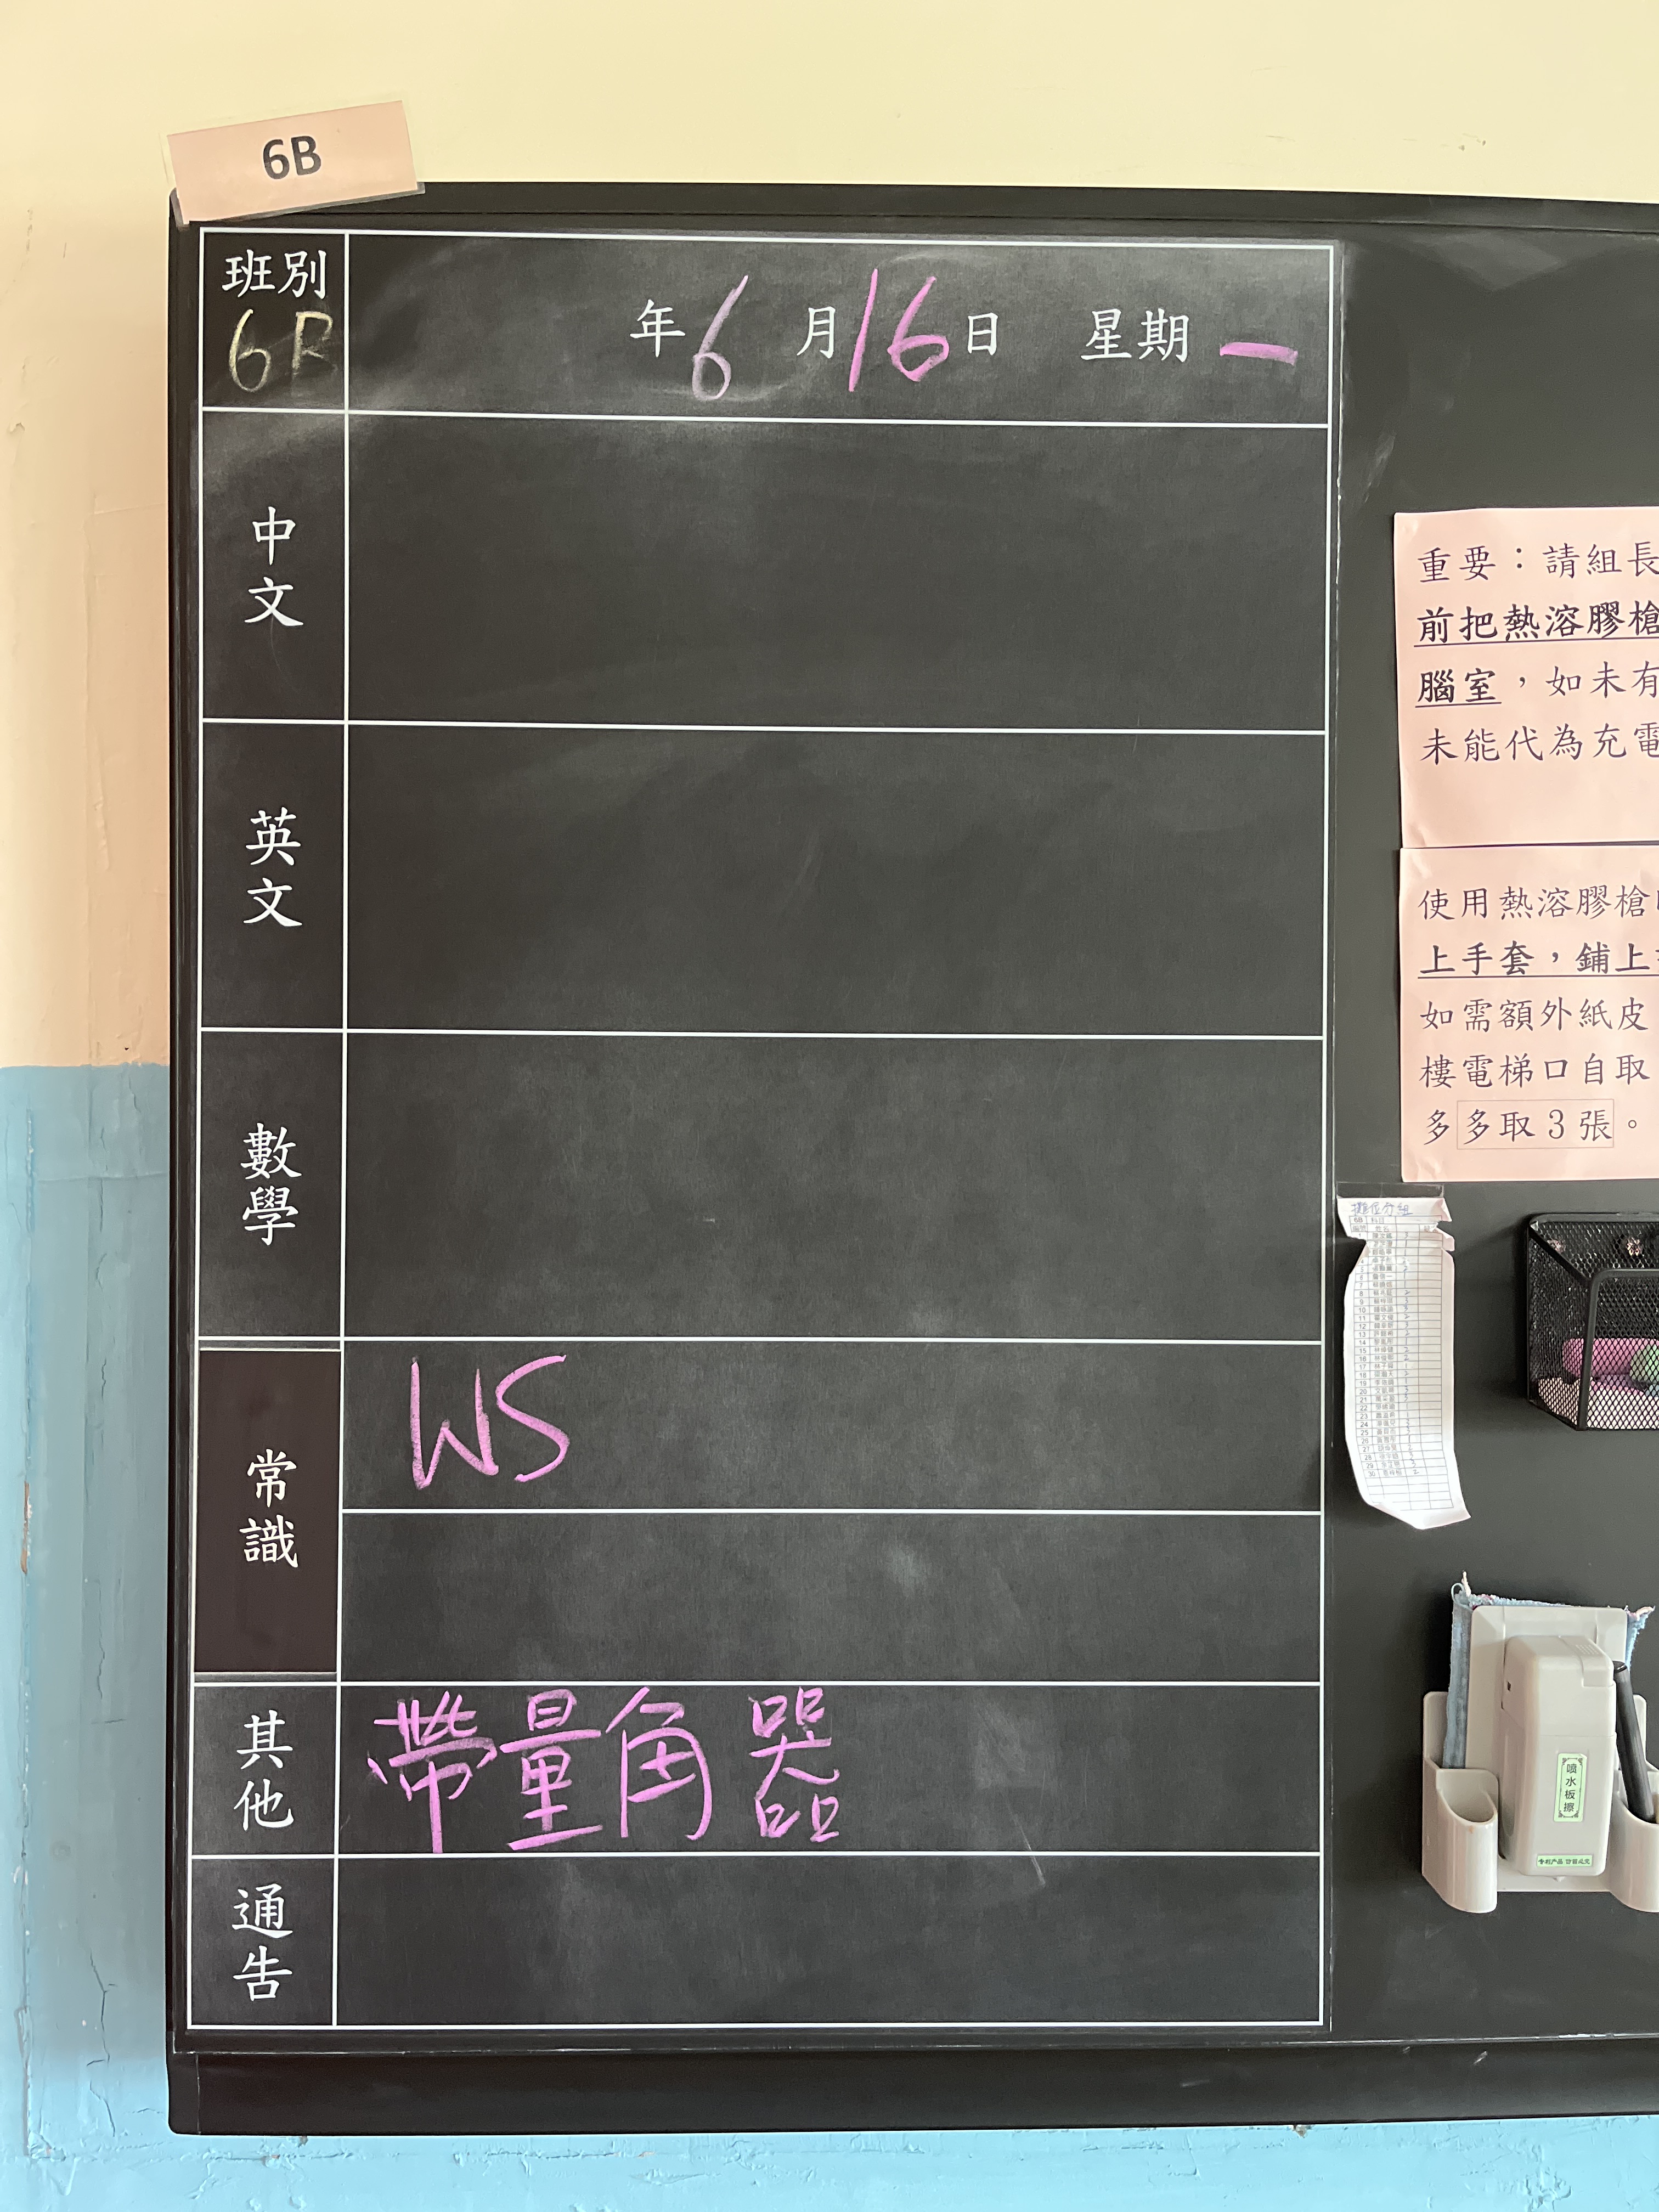 6B
班別
6B
年6月16日 星期一
中文
英文
數學
常識
WS
其他
帶量角器
通告
重要：請組長
前把熱溶膠槍
腦室，如未有
未能代為充電
使用熱溶膠槍
上手套，鋪上
如需額外紙皮
樓電梯口自取
多多取3張。
攤位分組
噴水板擦